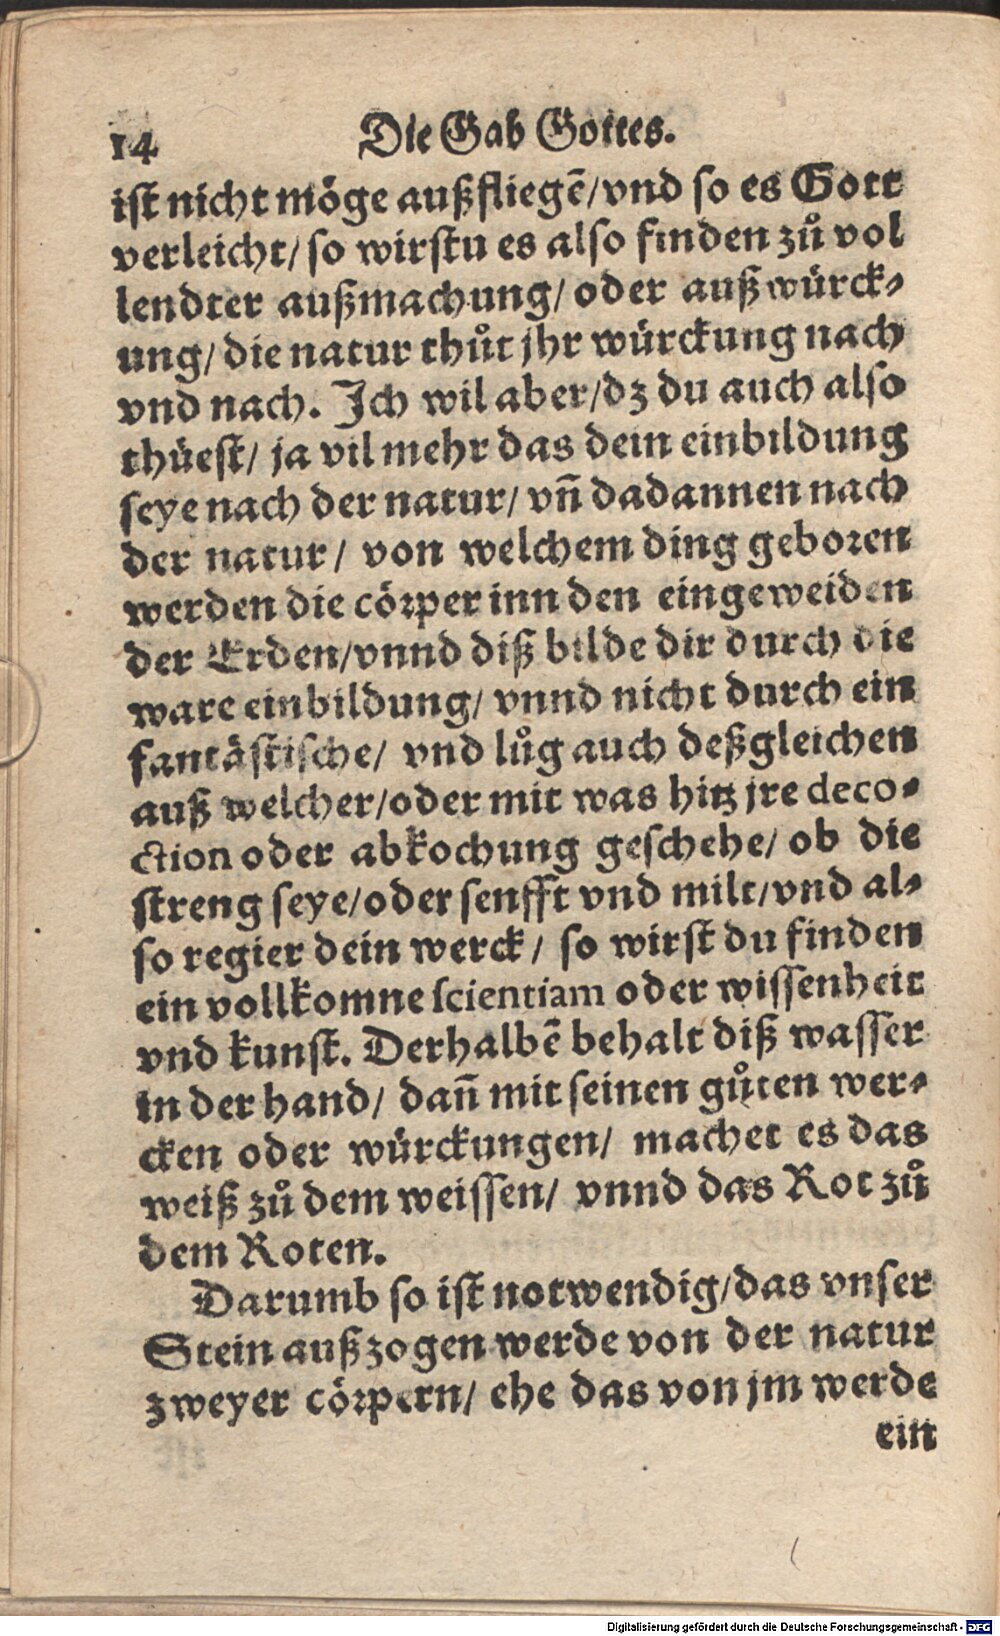 14 Die Gab Gottes.
ist nicht möge außfliegē/vnd so es Gott
verleicht/so wirstu es also finden zů vol
lendter außmachung/oder außwürck-
ung/die natur thůt jhr würckung nach
vnd nach. Ich wil aber/dz du auch also
thüest/ja vil mehr das dein einbildung
seye nach der natur/vñ dadannen nach
der natur/ von welchem ding geboren
werden die cörper inn den eingeweiden
der Erden/vnnd diß bilde dir durch die
ware einbildung/vnnd nicht durch ein
fantästische/ vnd lůg auch deßgleichen
auß welcher/oder mit was hitz jre deco-
ction oder abkochung geschehe/ob die
streng seye/oder senfft vnd milt/vnd al-
so regier dein werck/ so wirst du finden
ein vollkomne scientiam oder wissenheit
vnd kunst. Derhalbē behalt diß wasser
in der hand/ dañ mit seinen gůten wer-
cken oder würckungen/ machet es das
weiß zů dem weissen/ vnnd das Rot zů
dem Roten.
Darumb so ist notwendig/das vnser
Stein außzogen werde von der natur
zweyer cörpern/ ehe das von jm werde
ein
Digitalisierung gefördert durch die Deutsche Forschungsgemeinschaft - DFG